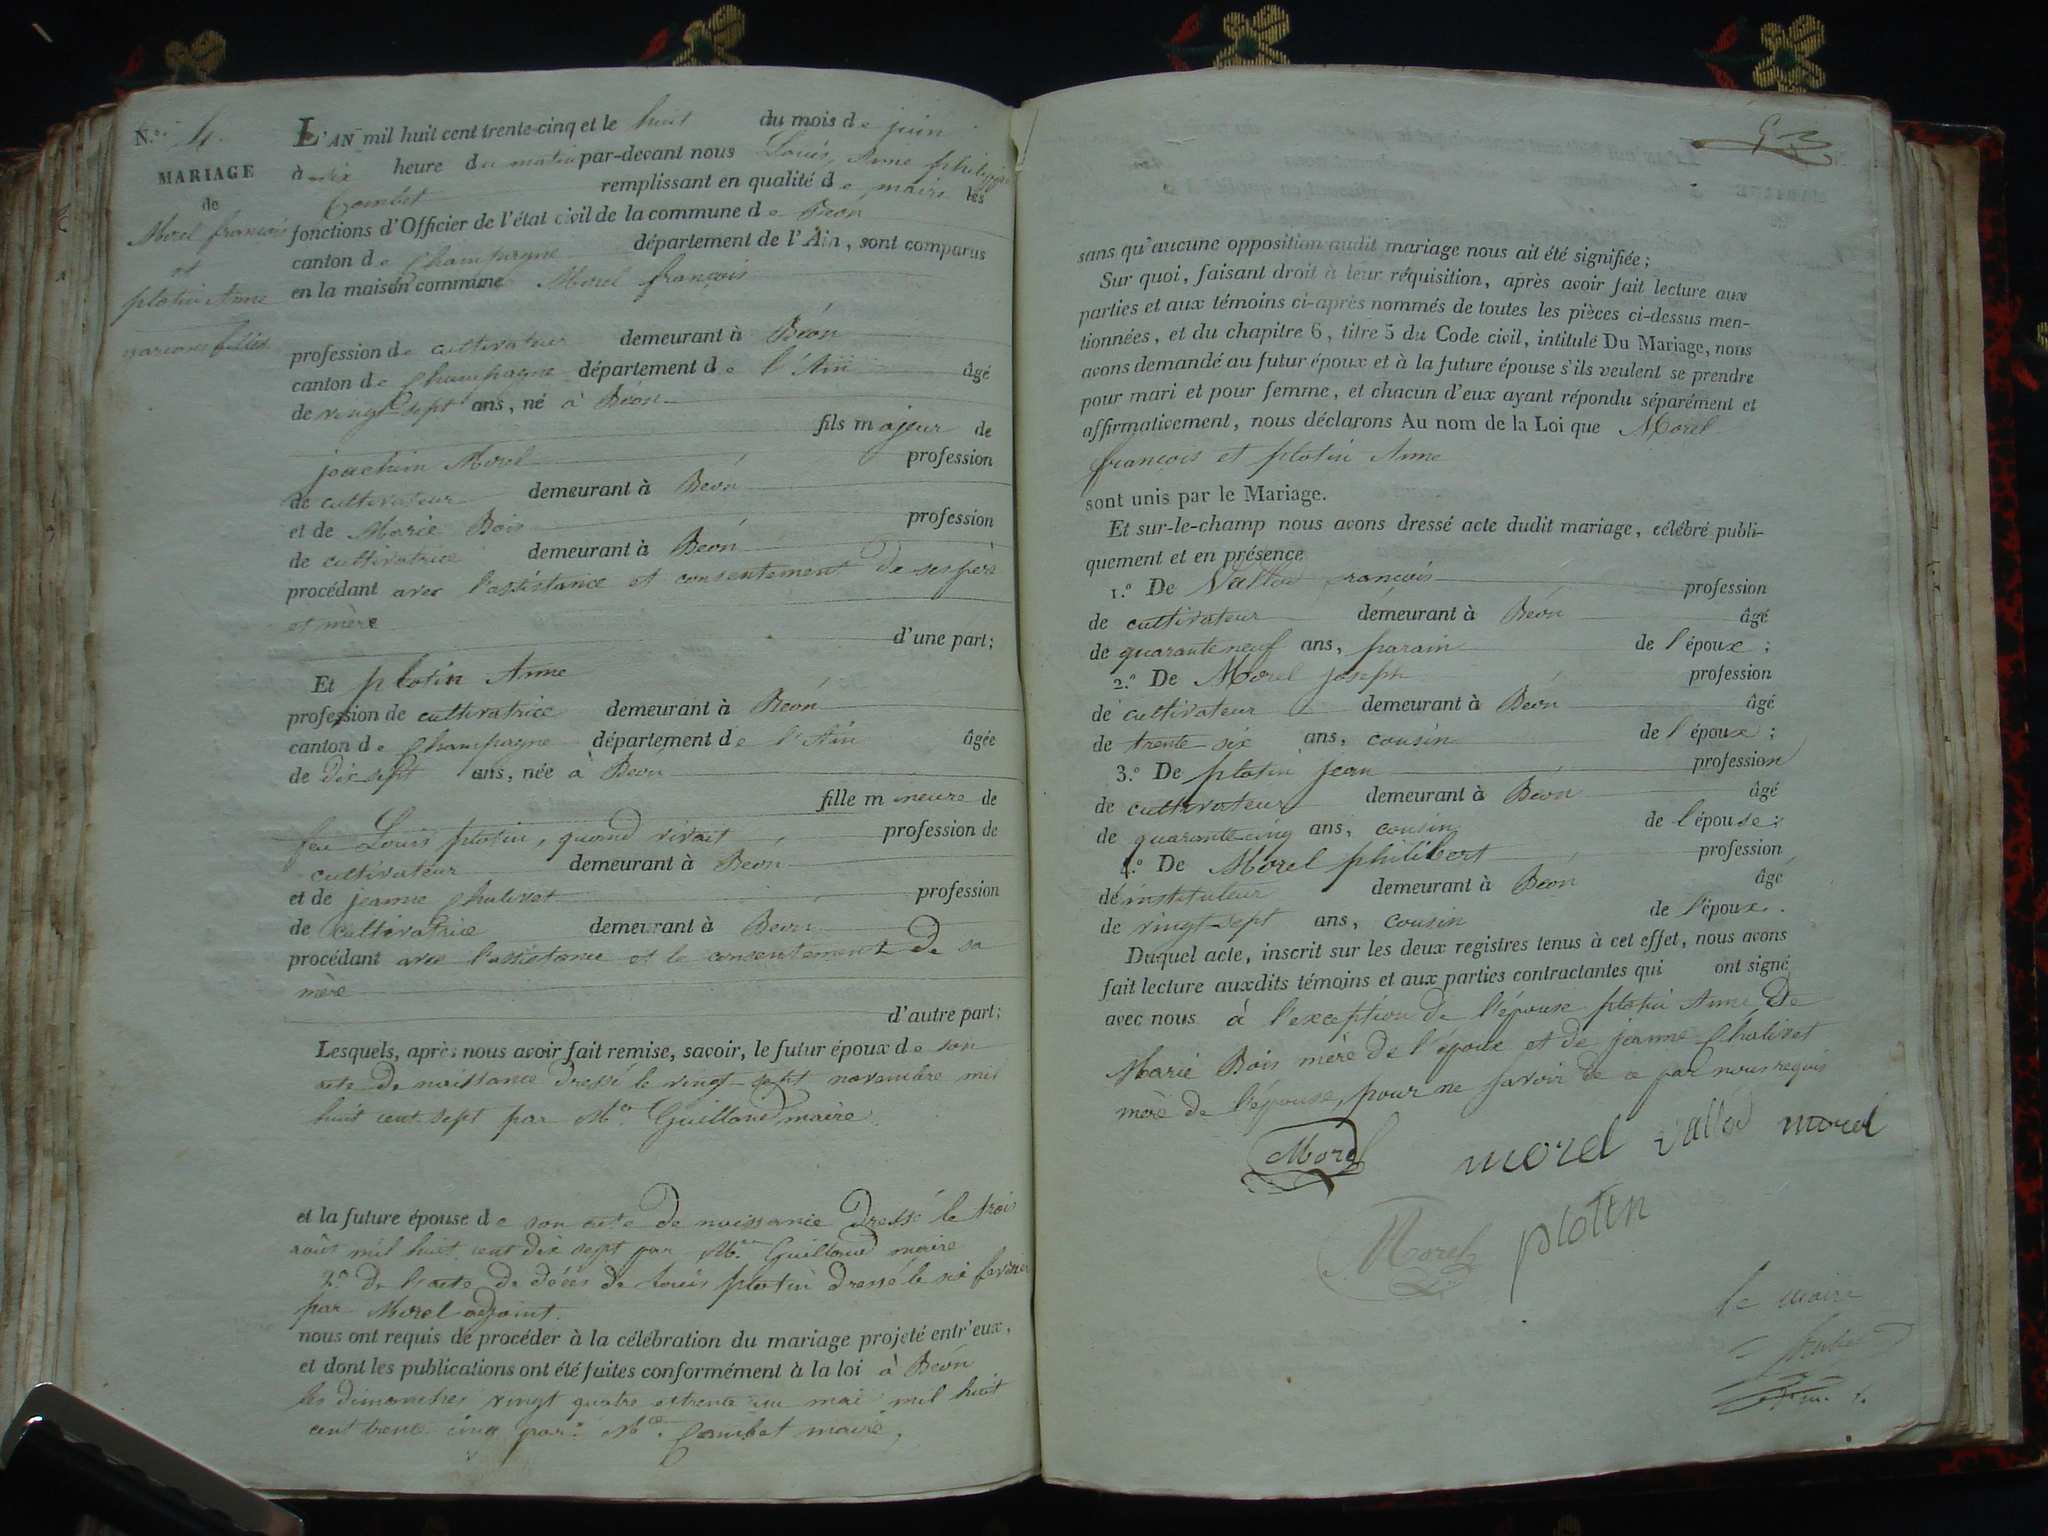 N.º 4.
MARIAGE
de
Morel françois
et
plotin Anne
garçon & fille
L'AN mil huit cent trente-cinq et le huit du mois de juin
à dix heure du matin par-devant nous Louis, Anne philippe
Combet remplissant en qualité de maire les
fonctions d'Officier de l'état civil de la commune de Béon
canton de Champagne département de l'Ain, sont comparus
en la maison commune Morel françois
profession de cultivateur demeurant à Béon
canton de Champagne département de l'Ain âgé
de vingt sept ans, né à Béon
fils majeur de
joachim Morel profession
de cultivateur demeurant à Béon
et de Marie Bois profession
de cultivatrice demeurant à Béon
procédant avec l'assistance et consentement de ses père
et mère
d'une part;
Et plotin Anne
profession de cultivatrice demeurant à Béon
canton de Champagne département de l'Ain âgée
de dix sept ans, née à Beon
fille mineure de
feu Louis plotin, quand vivait profession de
cultivateur demeurant à Béon
et de jeanne Chalivet profession
de cultivatrice demeurant à Beon
procédant avec l'assistance et le consentement de sa
mère
d'autre part;
Lesquels, après nous avoir fait remise, savoir, le futur époux de son
acte de naissance dressé le vingt-sept novembre mil
huit cent sept par Mr. Guilland maire.
et la future épouse de son acte de naissance dressé le trois
août mil huit cent dix sept par Mr. Guilland maire
2º de l'acte de décès de Louis plotin dressé le six fevrier
par Morel adjoint.
nous ont requis de procéder à la célébration du mariage projeté entr'eux,
et dont les publications ont été faites conformément à la loi à Béon
les dimanches vingt quatre et trente un mai mil huit
cent trente cinq par Mr. Combet maire,
sans qu'aucune opposition audit mariage nous ait été signifiée;
Sur quoi, faisant droit à leur réquisition, après avoir fait lecture aux
parties et aux témoins ci-après nommés de toutes les pièces ci-dessus men-
tionnées, et du chapitre 6, titre 5 du Code civil, intitulé Du Mariage, nous
avons demandé au futur époux et à la future épouse s'ils veulent se prendre
pour mari et pour femme, et chacun d'eux ayant répondu séparément et
affirmativement, nous déclarons Au nom de la Loi que Morel
françois et plotin Anne
sont unis par le Mariage.
Et sur-le-champ nous avons dressé acte dudit mariage, célébré publi-
quement et en présence
1.º De Vallod françois profession
de cultivateur demeurant à Béon âgé
de quarante neuf ans, parain de l'époux;
2.º De Morel joseph profession
de cultivateur demeurant à Béon âgé
de trente-six ans, cousin de l'époux;
3.º De plotin jean profession
de cultivateur demeurant à Béon âgé
de quarante-cinq ans, cousin de l'épouse;
4.º De Morel philibert profession
de instituteur demeurant à Béon âgé
de vingt-sept ans, cousin de l'époux.
Duquel acte, inscrit sur les deux registres tenus à cet effet, nous avons
fait lecture auxdits témoins et aux parties contractantes qui ont signé
avec nous à l'exception de l'épouse plotin Anne de
Marie Bois mère de l'époux et de jeanne Chalivet
mère de l'épouse, pour ne savoir de ce par nous requis
Morel morel vallod morel
Morel plotin
le maire